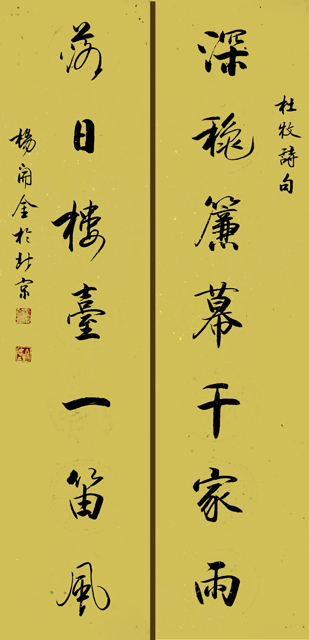 杜牧詩句
深穐簾幕千家雨
落日樓臺一笛風
楊開金於北京